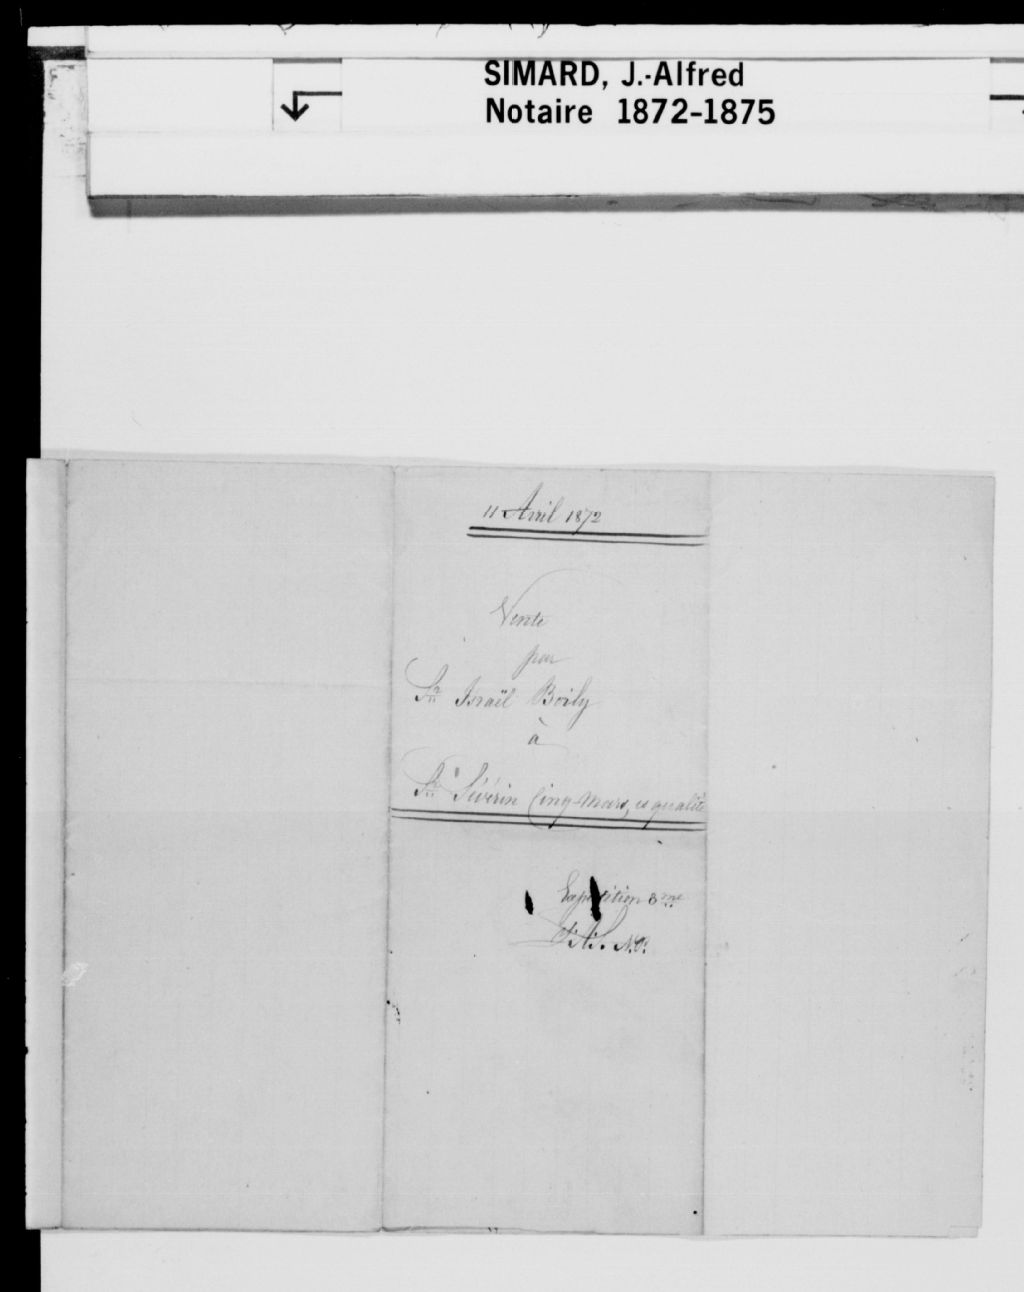 SIMARD, J.-Alfred
Notaire 1872-1875
11 Avril 1872
Vente
par
Sr Israël Boily
à
Sr Sévérin Cinq-Mars, es qualité
Expédition 3me
N.P.